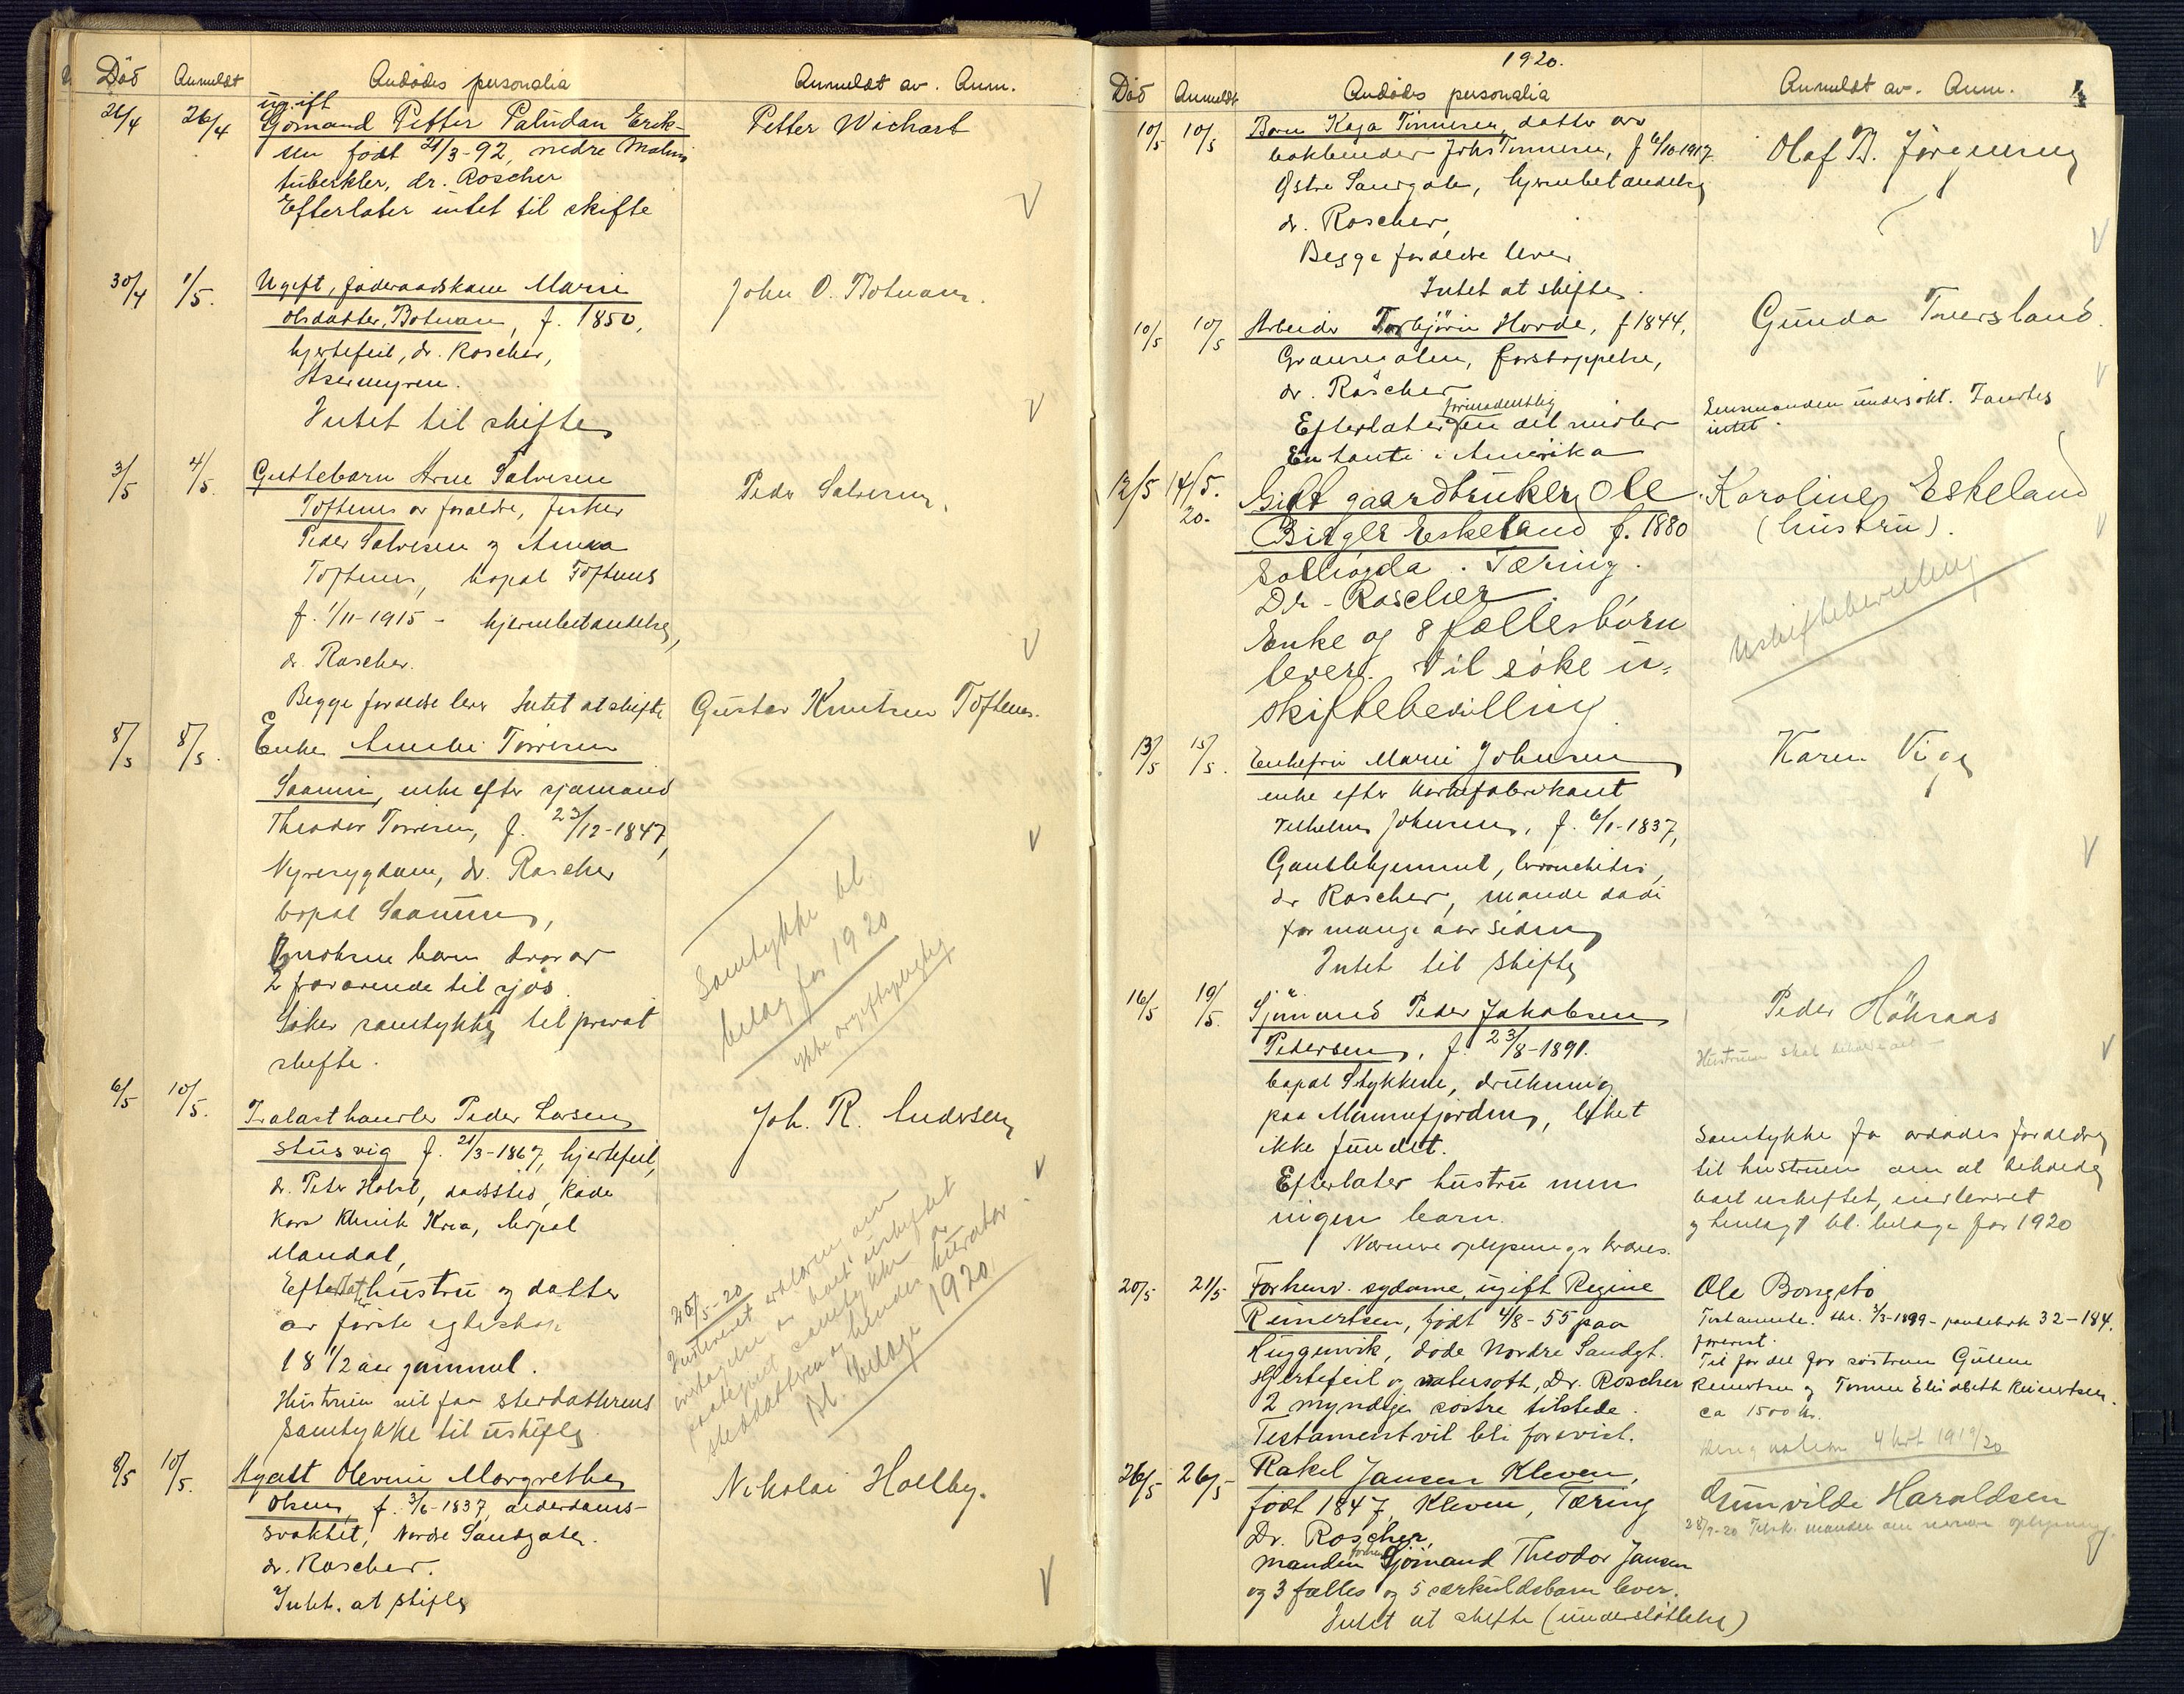 Död Anmeldt Avdödes personalia Anmeldt av. Anm.
26/4 26/4 ugift
Sjömand Petter Paludan Erik-
sen född 21/3-92, nedre Malmö
tuberkler, dr. Roscher
Efterlater intet til skifte
Petter Wichart
30/4 1/5. Ugift, föderaadskone Marie
Olsdatter Botnan, f. 1850,
hjertefeil, dr. Roscher,
Intet til skifte
John O. Botnan.
3/5 4/5. Guttebarn Arne Salvesen
Toftenes av foraldre, fisker
Peder Salvesen og Anna
Toftenes, bopal Toftenes
f. 1/11-1915 - hjernebetandelse,
dr. Roscher.
Begge foraldre lever Intet at skifte
Peder Salvesen
8/5 8/5. Enke Amalie Torresen
Saanum, enke efter sjömand
Theodor Torresen, f. 23/12-1847,
Nyresygdom, dr. Roscher
bopal Saanum,
7 voksne barn hvorav
2 fraværende til sjös
Söker samtykke til privat
skifte.
Gustav Knutsen Toftenes.
Samtykke bl.
belag for 1920
ikke avgiftspligtig
6/5 10/5. Trelasthandler Peder Larsen
Stusvig f. 21/3-1867, hjertefeil,
dr. Peter Holst, dödssted, Röde
Kors Klinik Kra, bopal
Mandal,
Efterlater hustru og datter
av förste egteskap
18 1/2 aar gammel.
Hustruen vil faa steddatterens
samtykke til uskifte
Joh. R. Andersen
25/5-20
Bl. belage 1920
8/5 10/5. Ugift Olevine Margrethe
Olsen, f. 3/6-1837, alderdoms-
svakhet, Nordre Sandgate.
dr. Roscher.
Intet at skifte
Nikolai Holby.
1920.
Död Anmeldt Avdödes personalia Anmeldt av. Anm.
10/5 10/5 Barn Kaja Tönnesen, datter av
bokbinder Johs Tönnesen, f 6/10-1917.
Östre Sandgate, hjernebetandelse
dr. Roscher,
Begge foraldre lever
Intet at skifte.
Olaf B. Jörgensen
10/5 10/5 Arbeider Torbjörn Horde, f 1844,
forstoppelse,
dr. Roscher
formodentlig
Efterlater en del midler
En tante i Amerika
Gunda Tversland.
Lensmanden undersökt. Fandtes
intet.
12/5 14/5.
20. Gift gaardbruker Ole
Birger Eskeland f. 1880
Solhögda. Tæring.
Dr. Roscher
Enke og 8 fællesbörn
lever. Vil söke u-
skiftebevilling.
Karoline Eskeland
(hustru).
Uskiftebevilling
13/5 15/5. Enkefru Marie Johnsen
enke efter korkefabrikant
Vilhelm Johnsen, f. 6/1-1837,
Gamlehjemmet, bronchitis,
dr Roscher, mande döde
for mange aar siden
Intet til skifte
Karen Vige
16/5 19/5. Sjömand Peder Jakobsen
Pedersen, f. 23/8-1891.
bopal Stykkene, drukning
paa Mannefjorden, liket
ikke fundet.
Efterlater hustru men
ingen barn.
Nærmere oplysninger kræves.
Peder Höhraas
Hustruen skal beholde alt
Samtykke fra avdödes foraldre
til hustruen om at beholde
boet uskiftet, indleveret
og henlagt bl. belage for 1920
20/5 21/5 Forhenv. sydame, ugift Regine
Reinertsen, född 4/8-55 paa
döde Nordre Sandgt.
Hjertefeil og vatersott, Dr. Roscher
2 myndige söstre tilstede.
Testament vil bli forevist.
Ole Bongsto
Testamente. thl. 3/3-1899 - pantebok 32-184.
forevist.
Til fordel for söstrene Guline
Reinertsen og Tomine Elisabeth Reinertsen.
ca 1500 kr.
26/5 26/5 Rakel Jansen Kleven,
född 1847, Kleven, Tæring
Dr. Roscher,
manden forhen Sjömand Theodor Jansen
og 3 fælles og 5 særkuldsbarn lever.
Intet at skifte (understöttelse)
Gunvilde Haraldsen